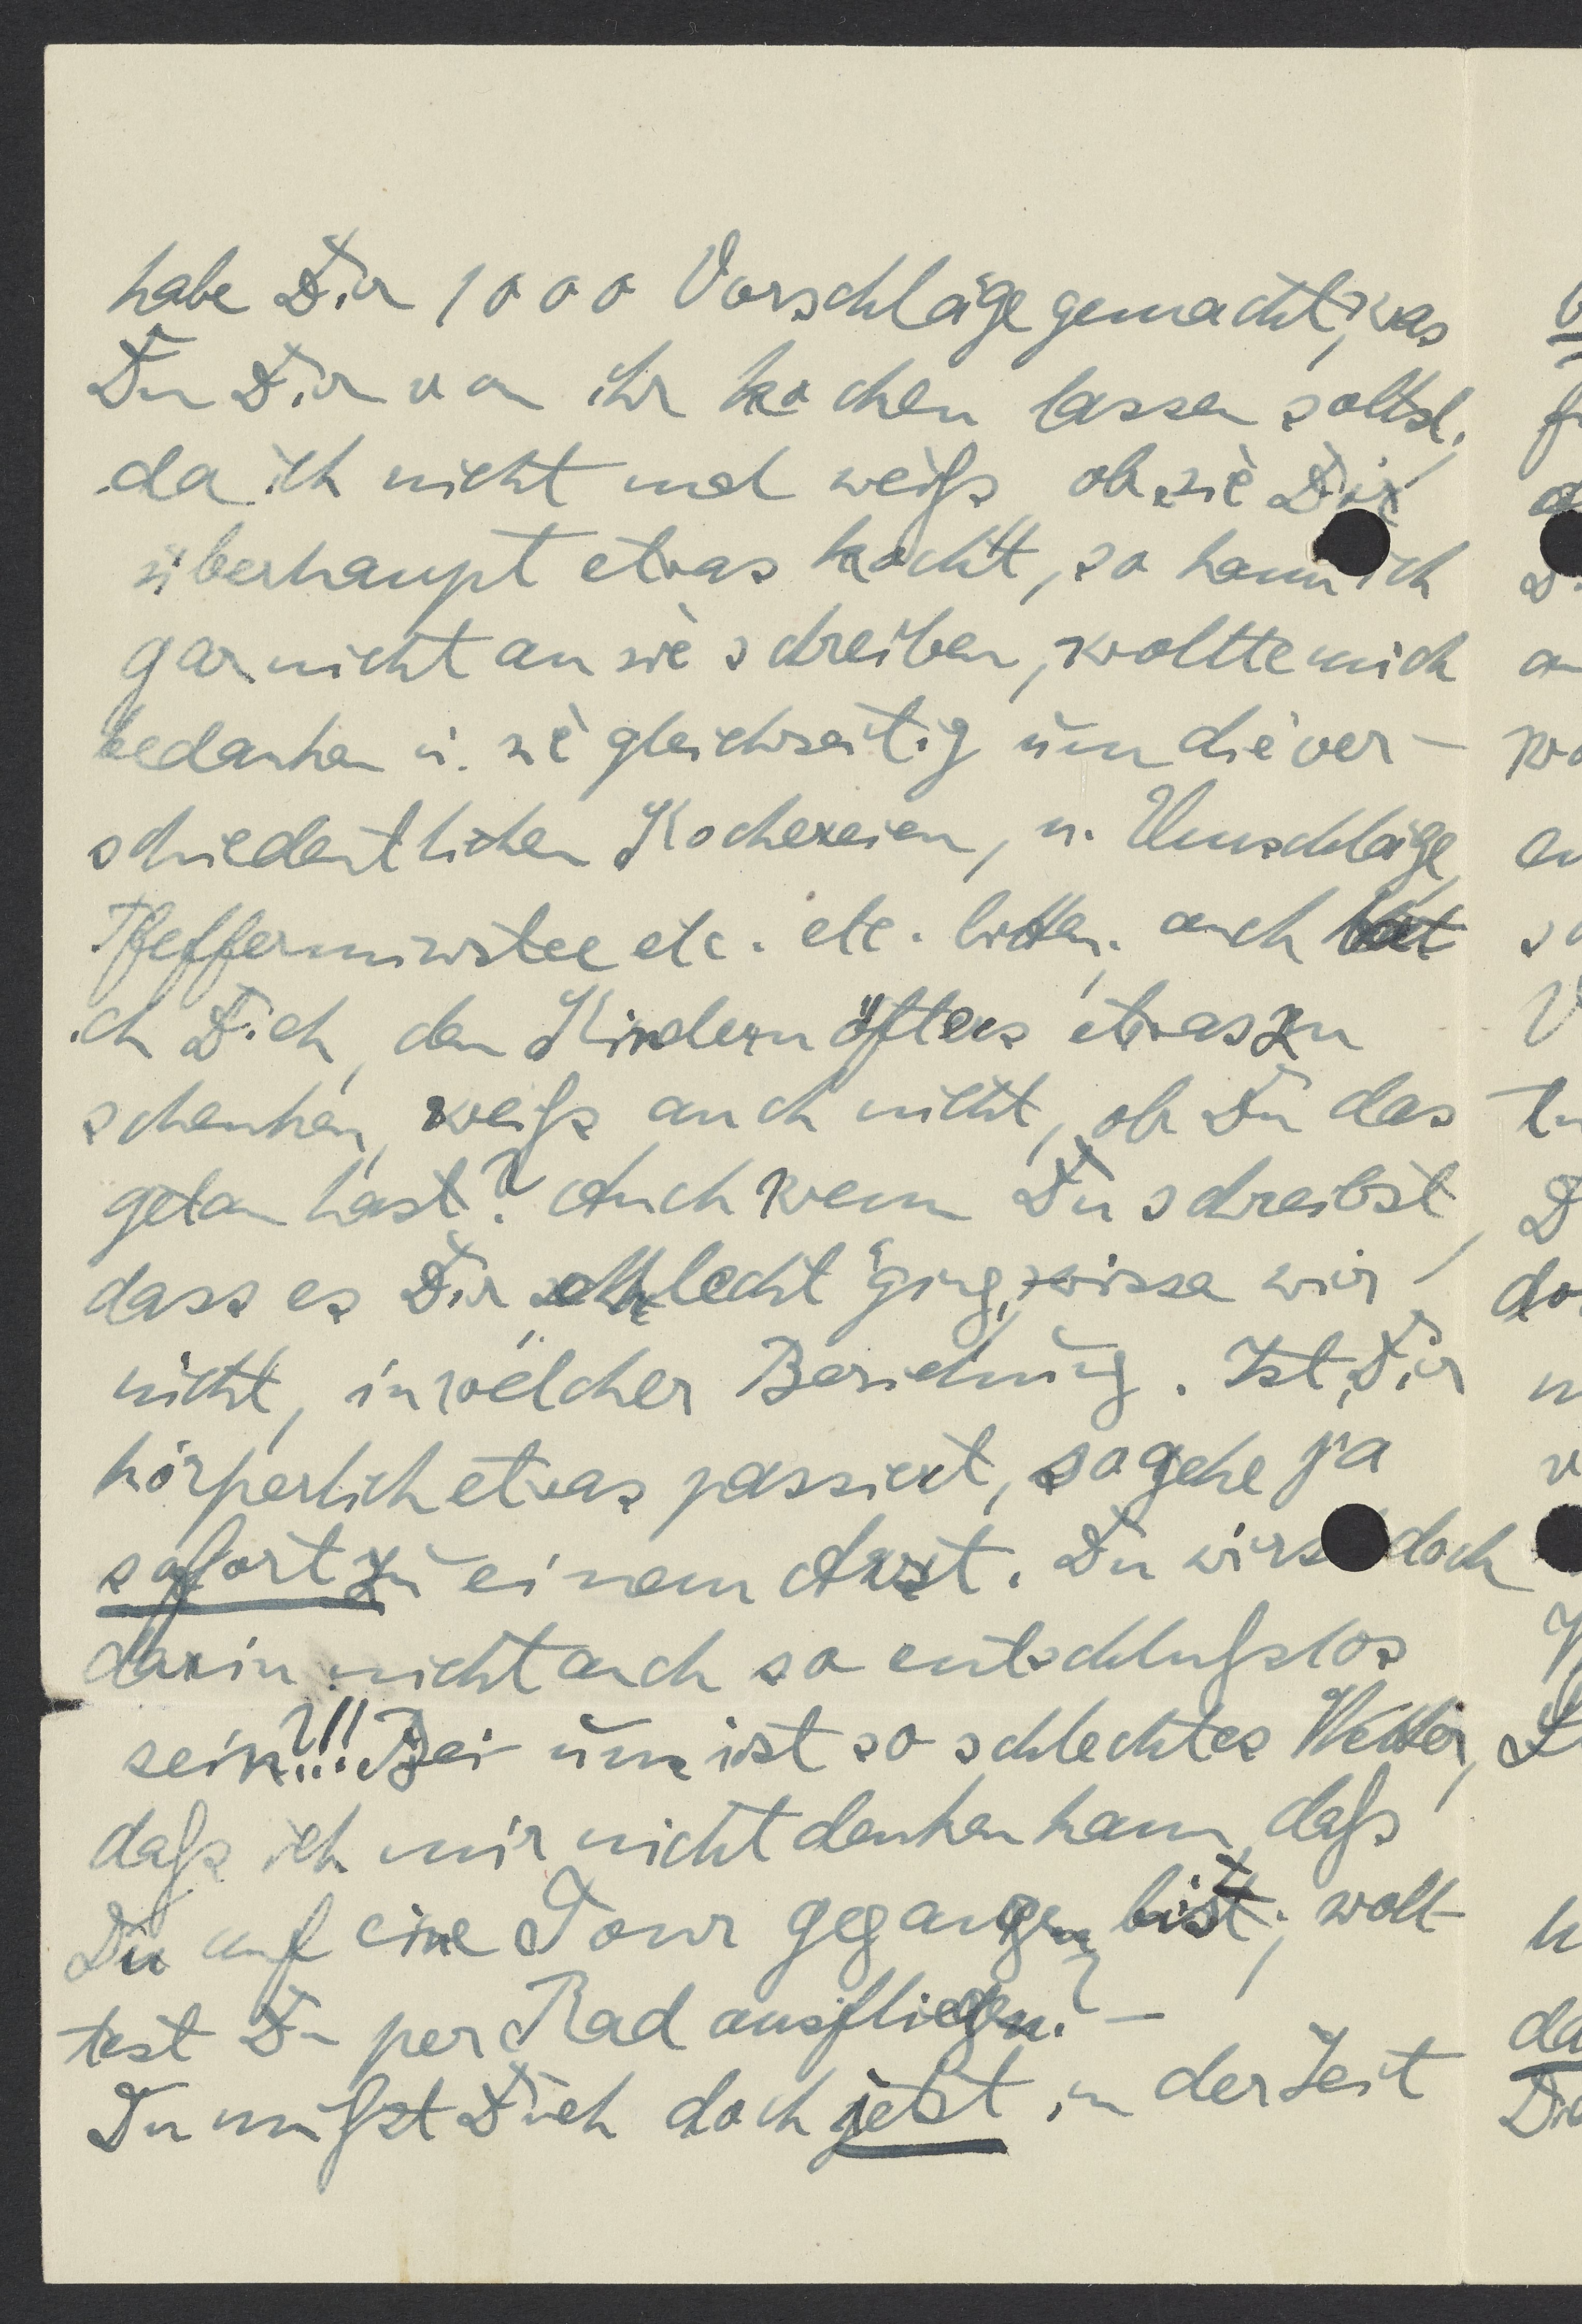 habe Dir 1000 Vorschläge gemacht, was
Du Dir von ihr kochen lassen sollst,
da ich nicht mal weiß, ob sie Dir
überhaupt etwas kocht, so kann ich
garnicht an sie schreiben, wollte mich
bedanken u. sie gleichzeitig um die ver-
schiedentlichen Kochereien, u. Umschläge
Pfefferminztee etc. etc. bitten, auch bat
ich Dich, den Kindern öfters etwas zu
schenken, weiß auch nicht, ob Du das
getan hast? Auch wenn Du schreibst,
dass es Dir schlecht ging, wissen wir
nicht, in welcher Beziehung. Ist Dir
körperlich etwas passiert, so gehe ja
sofort zu einem Arzt. Du wirst doch
darin nicht auch so entschlußlos
sein?!!! Bei uns ist so schlechtes Wetter,
daß ich mir nicht denken kann, daß
Du auf eine Tour gegangen bist, woll-
test Du per Rad ausfliegen? —
Du mußt Dich doch jetzt, in der Zeit